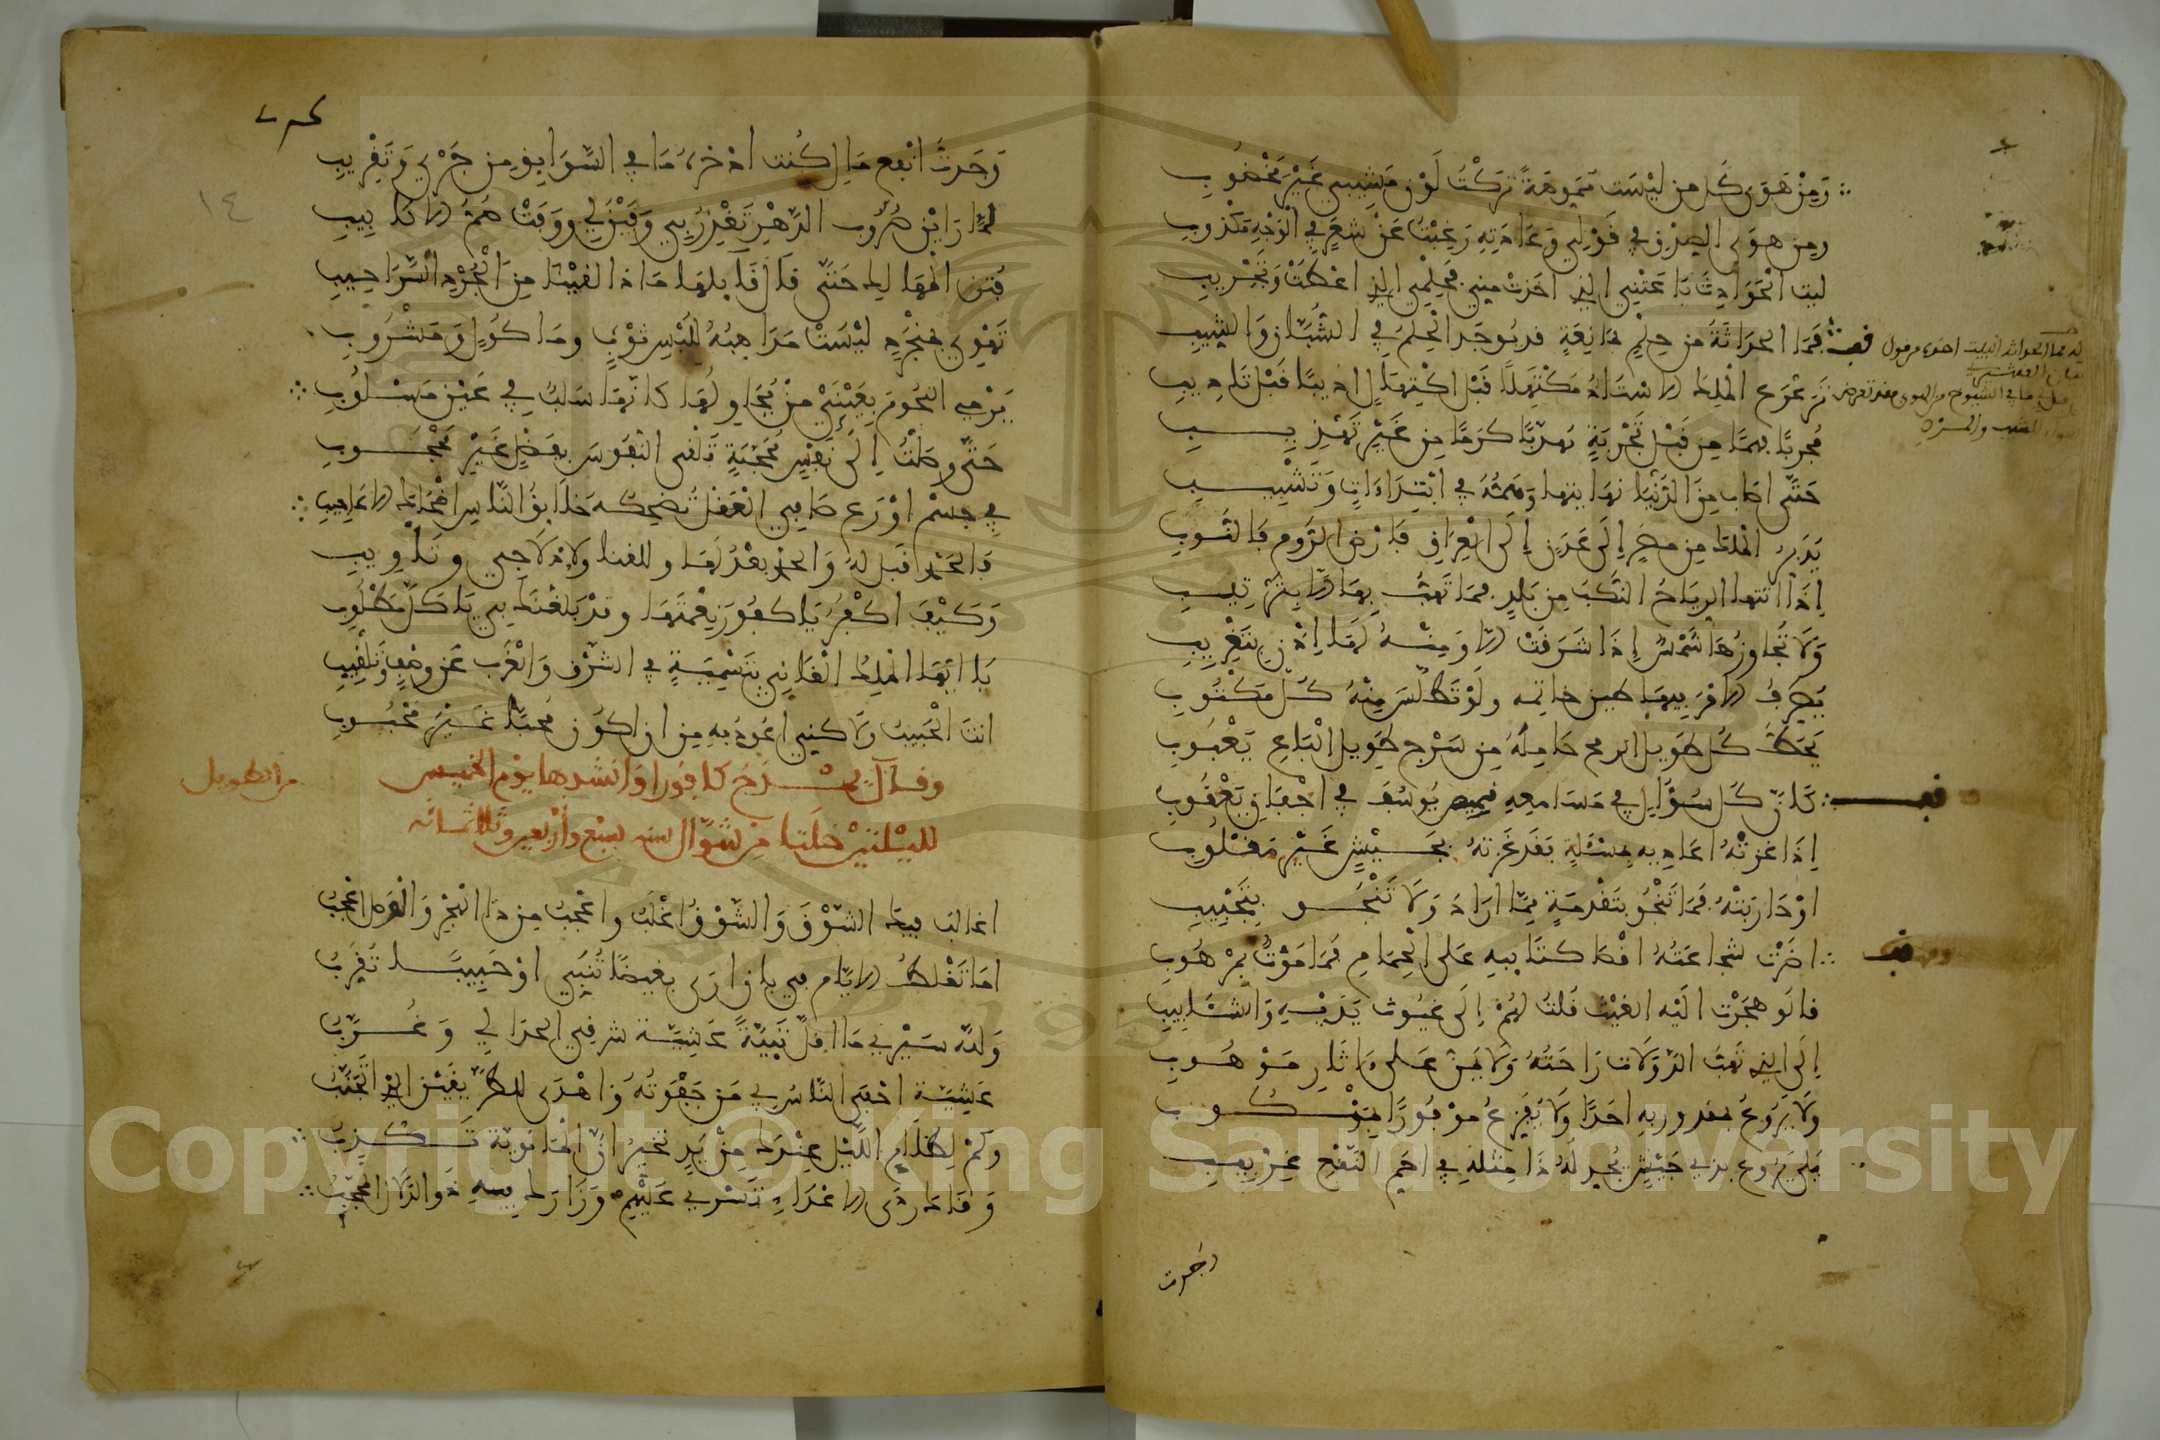 وَمِنْ هَوَى كُلِّ مَن لَيْسَت مُمَوِّهَةً تَرَكْتُ لَوْنَ مَشِيبِي غَيْرَ مَخْضُوبِ
ومِن هَوَى الصِّدْقِ فِي قَوْلِي وَعَادَتِهِ رَغِبْتُ عَنْ شَعَرٍ فِي الْوَجْهِ مَكْذُوبِ
ليت الْحَوَادِثَ بَاعَتْنِي الَّذِي أَخَذَتْ مِنِّي بِحِلْمِي الَّذِي أَعْطَتْ وَتَجْرِيبِ
فَمَا الحَدَاثَةُ مِن حِلْمٍ بِمَانِعَةٍ قد يُوجَدُ الْحِلْمُ فِي الشُّبَّانِ وَالشِّيبِ
تَرَعْرَعَ الْمَلِكُ الْأُسْتَاذُ مُكْتَهِلًا قَبْلَ اكْتِهَالٍ أَدِيبًا قَبْلَ تَادِيبِ
مُجَرَّبًا فَهِمًا مِن قَبْلِ تَجْرِبَةٍ مُهَذَّبًا كَرَمًا مِن غَيْرِ تَهْذِيبِ
حَتَّى أَصَابَ مِنَ الدُّنْيَا نِهَايَتَهَا وَهَمُّهُ فِي ابْتِدَاءَاتٍ وَتَشْبِيبِ
يُدَبِّرُ الْمُلْكَ مِن مِصْرٍ إِلَى عَدَنٍ إِلَى الْعِرَاقِ فَأَرْضِ الرُّومِ فَالنُّوبِ
إِذَا أَتَتْهَا الرِّيَاحُ النُّكْبُ مِن بَلَدٍ فَمَا تَهُبُّ بِهَا إِلَّا بِتَرْتِيبِ
وَلَا تُجَاوِزُهَا شَمْسٌ إِذَا شَرَقَتْ إِلَّا وَمِنْهُ لَهَا إِذْنٌ بِتَغْرِيبِ
يُصَرِّفُ الْأَمْرَ فِيهَا طِينُ خَاتِمِهِ وَلَوْ تَطَلَّسَ مِنْهُ كُلُّ مَكْتُوبِ
يَحُطُّ كُلَّ طَوِيلِ الرُّمْحِ حَامِلُهُ مِن سَرْجِ كُلِّ طَوِيلِ الْبَاعِ يَعْبُوبِ
كَأَنَّ كُلَّ سُؤَالٍ فِي مَسَامِعِهِ قَمِيصُ يُوسُفَ فِي أَجْفَانِ يَعْقُوبِ
إِذَا غَزَتْهُ أَعَادِيهِ بِمَسْأَلَةٍ فَقَد غَزَتْهُ بِجَيْشٍ غَيْرِ مَغْلُوبِ
أَوْ حَارَبَتْهُ فَمَا تَنْجُو بِتَقْدِمَةٍ مِمَّا أَرَادَ وَلَا تَنْجُو بِتَجْبِيبِ
أَضْرَتْ شَجَاعَتُهُ أَقْصَى كَتَائِبِهِ عَلَى الْحِمَامِ فَمَا مَوْتٌ بِمَرْهُوبِ
قالُوا هَجَرْتَ إِلَيْهِ الْغَيْثَ قُلْتُ لَهُمْ إِلَى غُيُوثِ يَدَيْهِ وَالشَّآبِيبِ
إِلَى الَّذِي تَهَبُ الدَّوْلَاتِ رَاحَتُهُ وَلَا يَمُنُّ عَلَى آثَارِ مَوْهُوبِ
وَلَا يَرُوعُ بِمَغْدُورٍ بِهِ أَحَدًا وَلَا يُفَزِّعُ مَوْفُورًا بِمَنْكُوبِ
بَلَى يَرُوعُ بِذِي جَيْشٍ يُجَدِّلُهُ ذَا مِثْلِهِ فِي أَحَمِّ النَّقْعِ غِرْبِيبِ
وَجَدتُ أَنْفَعَ مَالٍ كُنتُ أَذْخَرُهُ مَا فِي السَّوَابِقِ مِن جَرْيٍ وَتَقْرِيبِ
لَمَّا رَأَيْنَ صُرُوفَ الدَّهْرِ تَغْدِرُ بِي وَفَيْنَ لِي وَوَفَتْ صُمُّ الْأَنَابِيبِ
فُتْنَ الْمَهَالِكَ حَتَّى قَالَ قَائِلُهَا مَاذَا لَقِينَا مِنَ الْجُرْدِ السَّرَاحِيبِ
تَهْوِي بِمُنْجَرِدٍ لَيْسَتْ مَذَاهِبُهُ لِلُبْسِ ثَوْبٍ وَمَاكُولٍ وَمَشْرُوبِ
يَرْمِي النُّجُومَ بِعَيْنَيْ مَنْ يُحَاوِلُهَا كَأَنَّهَا سَلَبٌ فِي عَيْنِ مَسْلُوبِ
حَتَّى وَصَلْتُ إِلَى نَفْسٍ مُحَجَّبَةٍ تَلْقَى النُّفُوسَ بِفَضْلٍ غَيْرِ مَحْجُوبِ
فِي جِسْمِ أَرْوَعَ صَافِي الْعَقْلِ تُضْحِكُهُ خَلَائِقُ النَّاسِ إِضْحَاكَ الْأَعَاجِيبِ
فَالْحَمْدُ قَبْلُ لَهُ وَالْحَمْدُ بَعْدُ لَهَا وَلِلْقَنَا وَلِإِدْلَاجِي وَتَأْوِيبِي
وَكَيْفَ أَكْفُرُ يَا كَافُورُ نِعْمَتَهَا وَقَدْ بَلَغْنَكَ بِي يَا كُلَّ مَطْلُوبِي
يَا أَيُّهَا الْمَلِكُ الْغَانِي بِتَسْمِيَةٍ فِي الشَّرْقِ وَالْغَرْبِ عَن وَصْفٍ وَتَلْقِيبِ
أَنتَ الْحَبِيبُ وَلَكِنِّي أَعُوذُ بِهِ مِن أَن أَكُونَ مُحِبًّا غَيْرَ مَحْبُوبِ
وقال يمدح كافورا وأنشدها يوم الخميس
لليلتين خلتا من شوال سنة سبع وأربعين وثلاثمائة
من الطويل
أُغَالِبُ فِيكَ الشَّوْقَ وَالشَّوْقُ أَغْلَبُ وَأَعْجَبُ مِن ذَا الْهَجْرِ وَالْوَصْلُ أَعْجَبُ
أَمَا تَغْلَطُ الْأَيَّامُ فِيَّ بِأَن أَرَى بَغِيضًا تُنَائِي أَوْ حَبِيبًا تُقَرِّبُ
وَلِلَّهِ سَيْرِي مَا أَقَلَّ تَئِيَّةً عَشِيَّةَ شَرْقِيَّ الْحَدَالِي وَغُرَّبُ
عَشِيَّةَ أَحْفَى النَّاسِ بِي مَن جَفَوْتُهُ وَأَهْدَى الطَّرِيقَيْنِ الَّذِي أَتَجَنَّبُ
وَكَمْ لِظَلَامِ اللَّيْلِ عِنْدَكَ مِنْ يَدٍ تُخَبِّرُ أَنَّ الْمَانَوِيَّةَ تَكْذِبُ
وَقَاكَ رَدَى الْأَعْدَاءِ تَسْرِي عَلَيْهِمُ وَزَارَكَ فِيهِ ذُو الدَّلَالِ الْمُحَجَّبُ
١٤
Copyright © King Saud University